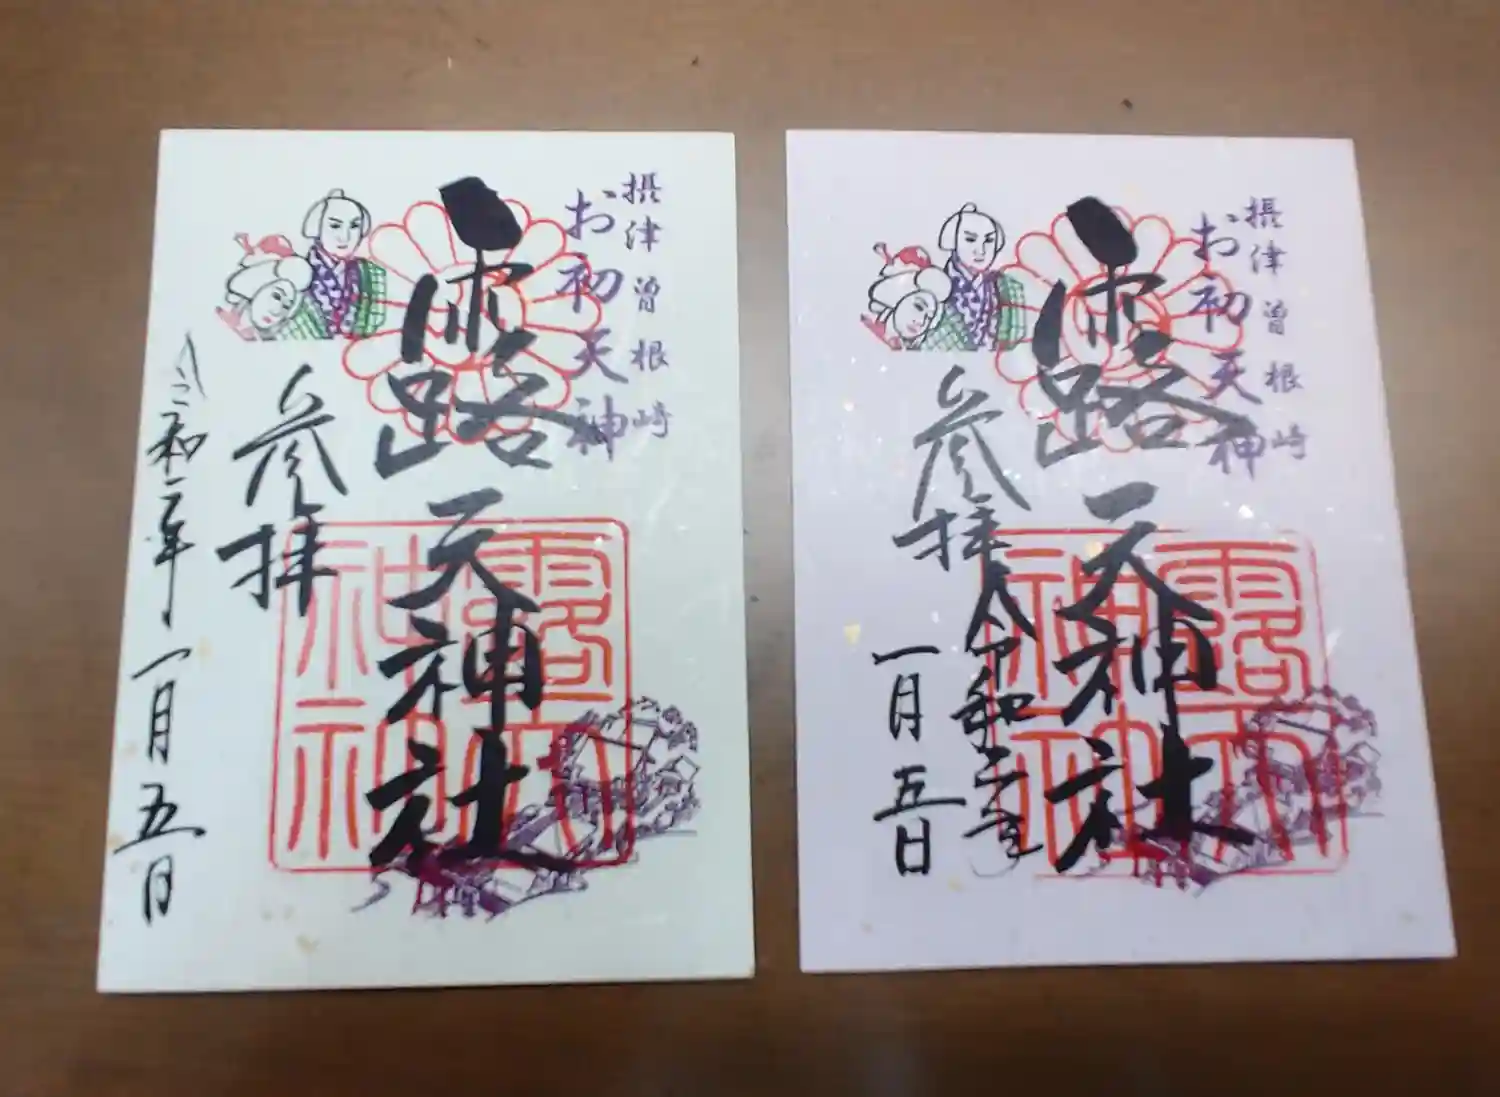 摂津曽根崎
お初天神
露天神社
露天神社
参拝
令和二年
一月五日
摂津曽根崎
お初天神
露天神社
露天神社
参拝
令和二年
一月五日